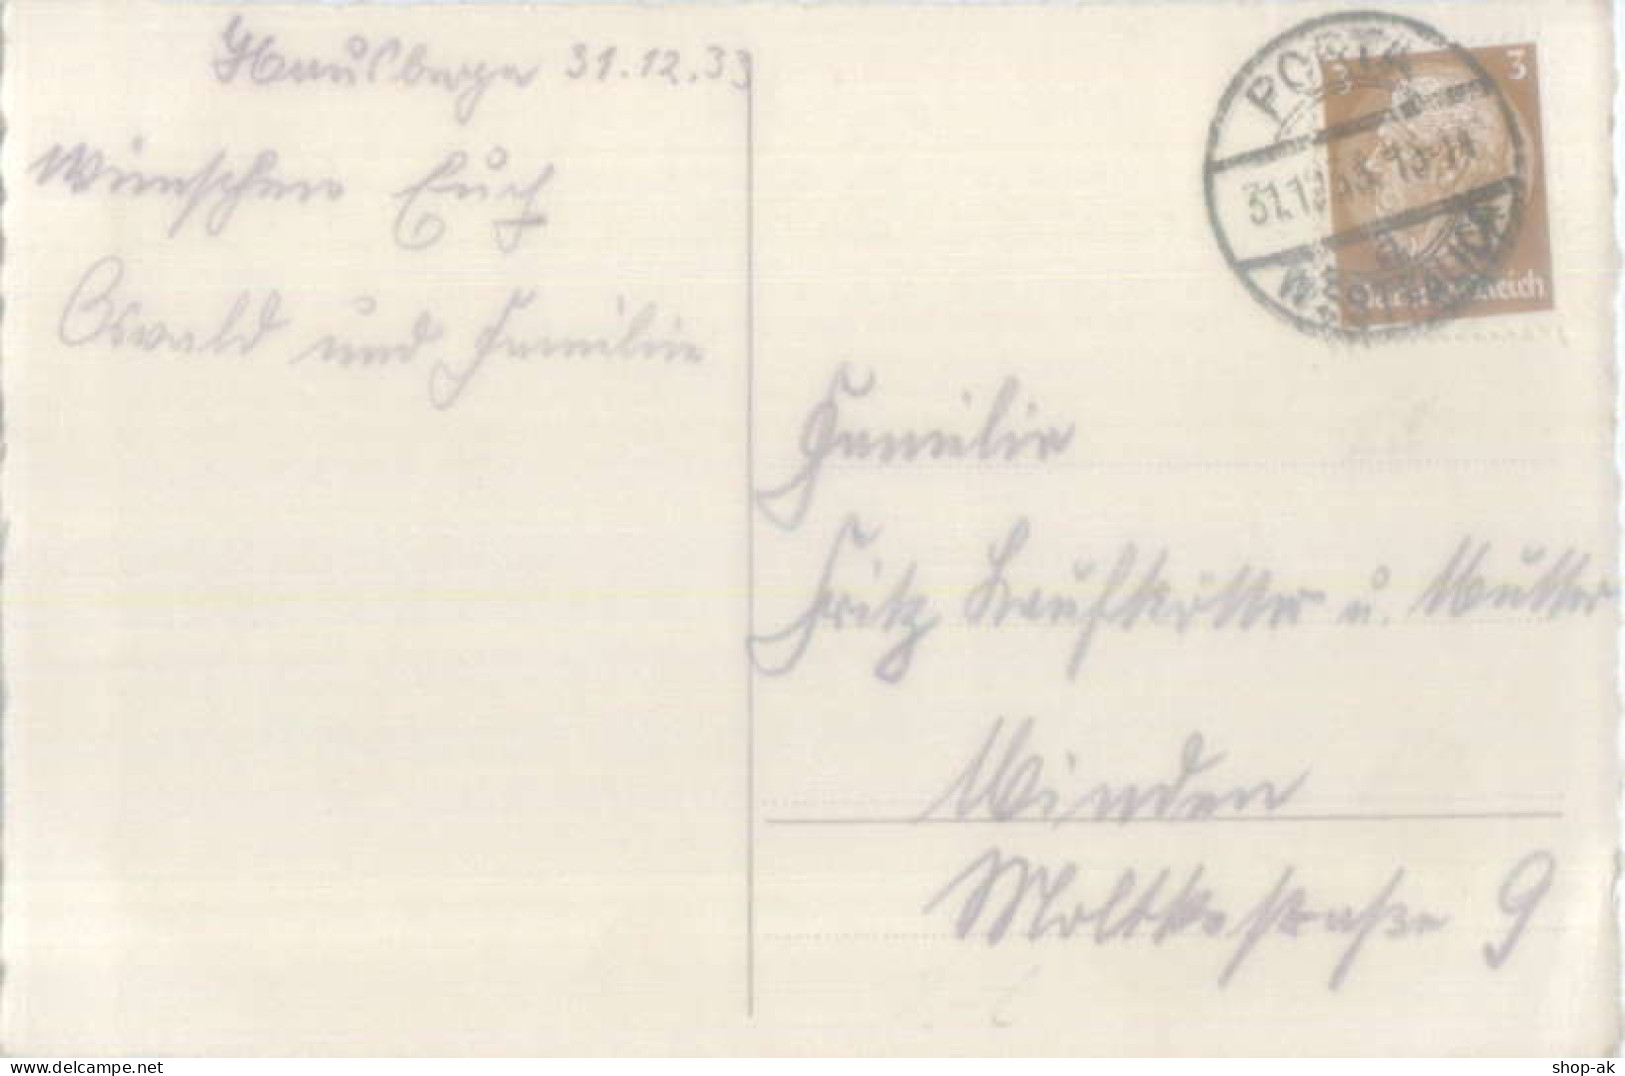 Hausberge 31.12.33
Wünschen Euch
Oswald und Familie
PORTA
31.12.33.13-14
WESTFALICA
3
3
Deutsches Reich
Familie
Fritz Kaufkötter u. Mutter
Minden
Moltkestraße 9
www.delcampe.net
shop-ak